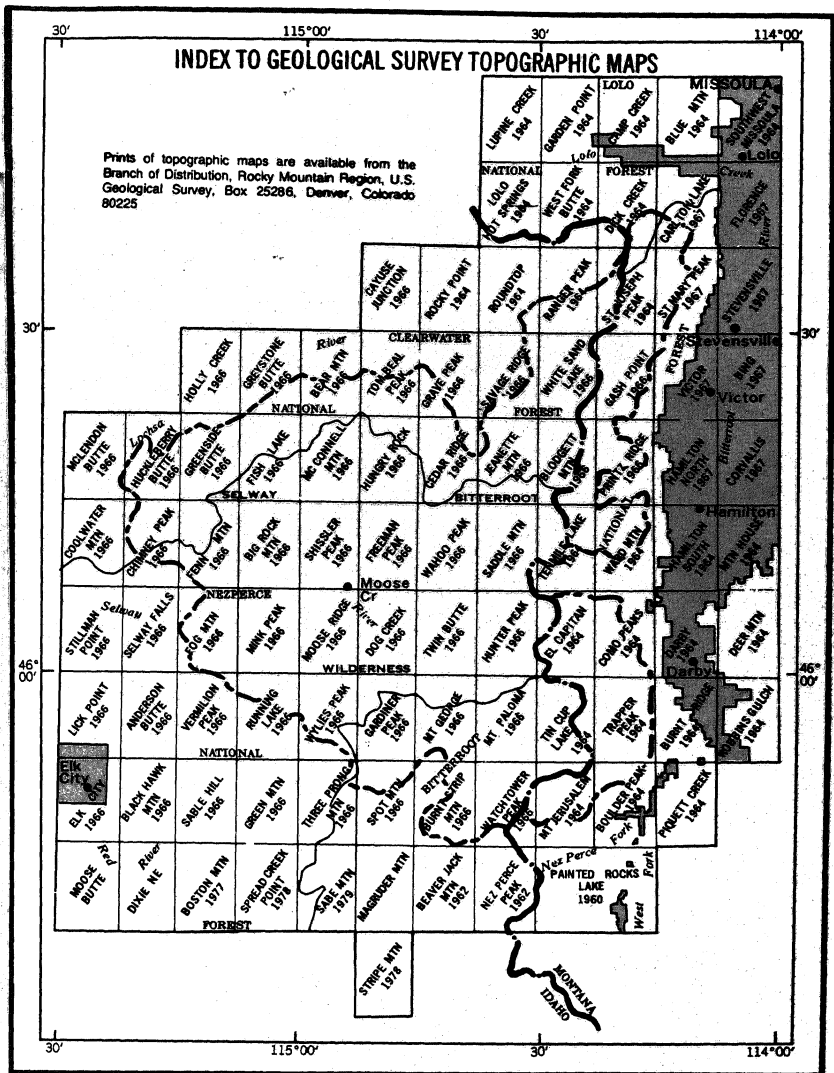 30′ 115°00′ 30′ 114°00′
INDEX TO GEOLOGICAL SURVEY TOPOGRAPHIC MAPS
Prints of topographic maps are available from the
Branch of Distribution, Rocky Mountain Region, U.S.
Geological Survey, Box 25286, Denver, Colorado
80225
LUPINE CREEK
1964
GARDEN POINT
1964
LOLO
CAMP CREEK
1964
BLUE MTN
1964
MISSOULA
SOUTHWEST
MISSOULA
1964
Lolo
Lolo
Creek
NATIONAL
FOREST
LOLO
HOT SPRINGS
1964
WEST FORK
BUTTE
1964
DICK CREEK
CARLTON LAKE
1967
FLORENCE
1967
River
CAYUSE
JUNCTION
1966
ROCKY POINT
1964
ROUNDTOP
1964
RANGER PEAK
1964
ST JOSEPH
PEAK
1964
ST MARY PEAK
1967
STEVENSVILLE
1967
30′
30′
Stevensville
CLEARWATER
FOREST
HOLLY CREEK
1966
GREYSTONE
BUTTE
1966
River
BEAR MTN
1966
TOM BEAL
PEAK
1966
GRAVE PEAK
1966
SAVAGE RIDGE
1966
WHITE SAND
LAKE
1966
GASH POINT
1966
VICTOR
1967
RING
1967
Victor
NATIONAL
FOREST
MCLENDON
BUTTE
1966
Lochsa
HUCKLEBERRY
BUTTE
1966
GREENSIDE
BUTTE
1966
FISH LAKE
1966
MC CONNELL
MTN
1966
HUNGRY ROCK
1966
CEDAR RIDGE
1966
JEANETTE
MTN
1966
BLODGETT
MTN
1966
PRINTZ RIDGE
HAMILTON
NORTH
1967
Bitterroot
CORVALLIS
1967
SELWAY
BITTERROOT
COOLWATER
MTN
1966
CHIMNEY PEAK
1966
FENN MTN
1966
BIG ROCK
MTN
1966
SHISSLER
PEAK
1966
FREEMAN PEAK
1966
WAHOO PEAK
1966
SADDLE MTN
1966
NATIONAL
WARD MTN
1964
Hamilton
HAMILTON
SOUTH
1964
MTN HOUSE
1964
NEZPERCE
Moose
Cr
STILLMAN
POINT
1966
Selway
SELWAY FALLS
1966
FOG MTN
1966
MINK PEAK
1966
MOOSE RIDGE
1966
River
DOG CREEK
1966
TWIN BUTTE
1966
HUNTER PEAK
1966
EL CAPITAN
1964
COMO PEAKS
1964
DARBY
1964
Darby
DEER MTN
1964
46°
00′
WILDERNESS
46°
00′
LICK POINT
1966
ANDERSON
BUTTE
1966
VERMILION
PEAK
1966
RUNNING
LAKE
1966
WYLIES PEAK
1966
GARDINER
PEAK
1966
MT GEORGE
1966
MT PALOMA
1966
TIN CUP
LAKE
1964
TRAPPER
PEAK
1964
BURNT RIDGE
1964
ROBBINS GULCH
1964
NATIONAL
BITTERROOT
Elk
City
ELK CITY
1966
BLACK HAWK
MTN
1966
SABLE HILL
1966
GREEN MTN
1966
THREE PRONG
MTN
1966
SPOT MTN
1966
BURNT STRIP
MTN
1966
WATCHTOWER
PEAK
1966
MT JERUSALEM
1964
BOULDER PEAK
1964
PIQUETT CREEK
1964
MOOSE
BUTTE
Red
River
DIXIE NE
BOSTON MTN
1977
SPREAD CREEK
POINT
1978
SABE MTN
1979
MAGRUDER MTN
BEAVER JACK
MTN
1962
NEZ PERCE
PEAK
1962
Nez Perce
Fork
PAINTED ROCKS
LAKE
1960
West
Fork
FOREST
STRIPE MTN
1978
MONTANA
IDAHO
30′ 115°00′ 30′ 114°00′